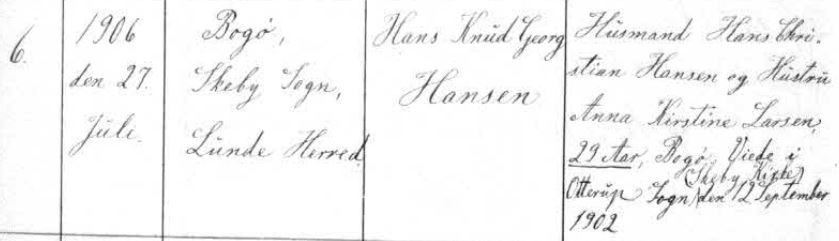 6.
1906
den 27.
Juli.
Bogø,
Skeby Sogn,
Lunde Herred
Hans Knud Georg
Hansen
Husmand Hans Chri-
stian Hansen og Hustru
Anna Kirstine Larsen,
29 Aar, Bogø, Viede i
(Skeby Kirke)
Otterup Sogn den 12 September
1902